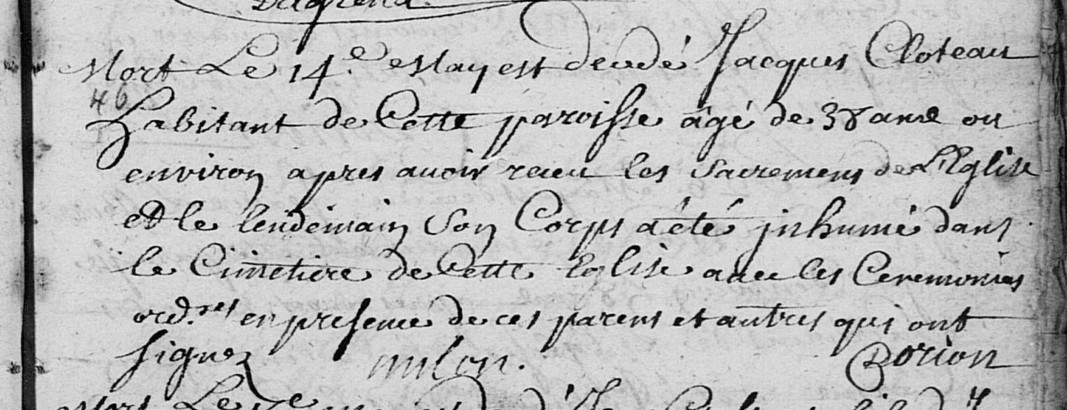 Mort Le 14.e May est décédé Jacques Cloteau
46
habitant de Cette paroisse âgé de 38 ans ou
environ apres auoir receu les Sacremens de L'Eglise
et le lendemain Son Corps a été inhumé dans
le Cimetiere de Cette Eglise auec les Ceremonies
ord.res en presence de ces parens et autres qui ont
signez milon. Dorion
Mort Le